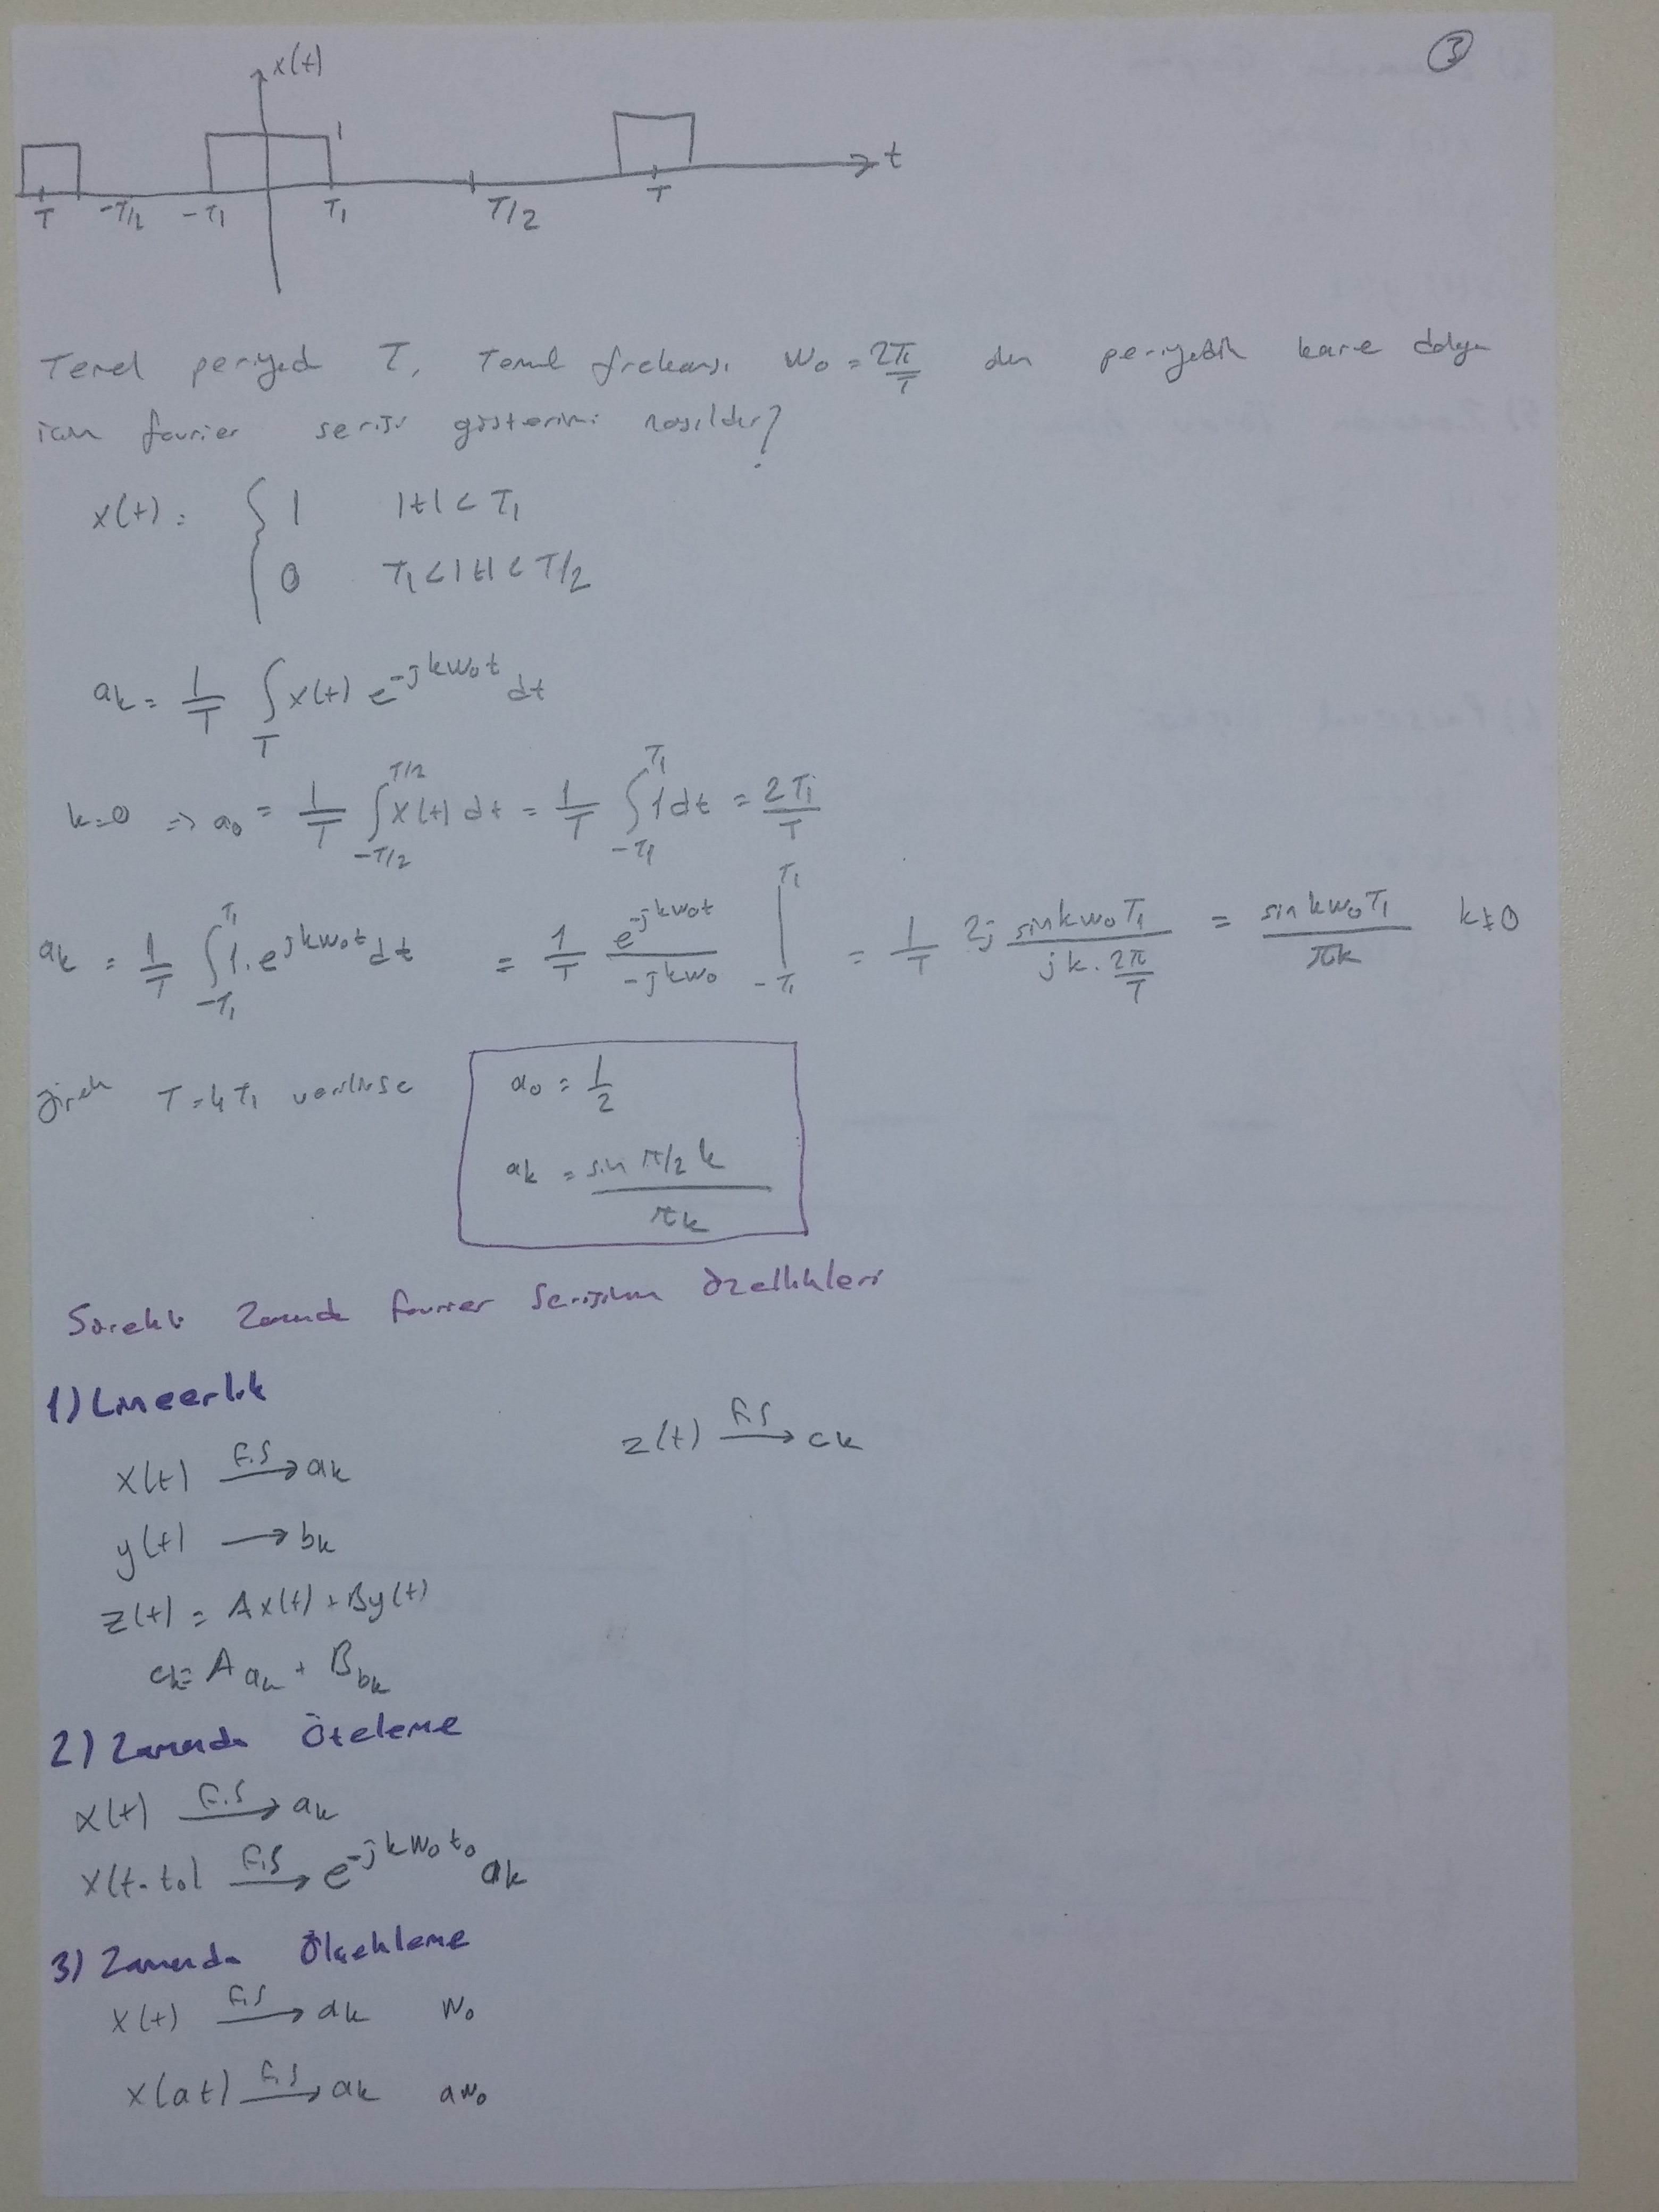 3
x(t)
1
t
T -T/2 -T1 T1 T/2 T
Temel periyodu T, Temel frekansı w0 = 2π/T olan periyodik kare dalga
için fourier serisi gösterimi nasıldır?
x(t) = { 1 |t| < T1
0 T1 < |t| < T/2
ak = 1/T ∫T x(t) e^-jkw0t dt
k=0 => a0 = 1/T ∫-T/2^T/2 x(t) dt = 1/T ∫-T1^T1 1 dt = 2T1/T
ak = 1/T ∫-T1^T1 1. e^jkw0t dt = 1/T e^-jkw0t/-jkw0 |-T1^T1 = 1/T 2j sinkw0T1/jk.2π/T = sinkw0T1/πk k≠0
T=4T1 verilirse
a0 = 1/2
ak = sin π/2 k/πk
Sürekli Zamanda fourier Serisinin Özellikleri
1) Lineerlik
x(t) F.S→ ak z(t) F.S→ ck
y(t) → bk
z(t) = Ax(t) + By(t)
ck = A ak + B bk
2) Zamanda Öteleme
x(t) F.S→ ak
x(t-t0) F.S→ e^-jkw0t0 ak
3) Zamanda Ölçekleme
x(t) F.S→ ak w0
x(at) F.S→ ak aw0